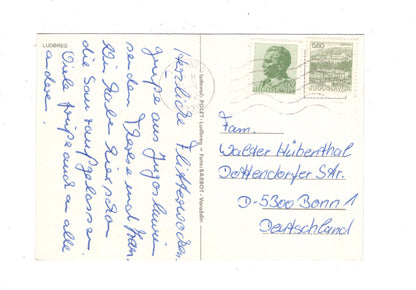 LUDBREG
Herzliche Flitterwochen
grüße aus Jugoslawien
senden
Wir haben hier schon
die Sau rausgelassen.
Viele Grüße auch an alle
andere.
Izdavač: POLET - Ludbreg - Foto: BARBOT - Varaždin
JUGOSLAVIJA
5.60
JUGOSLAVIJA
Fam.
Walter Hübenthal
Dottendorfer Str.
D-5300 Bonn 1
Deutschland